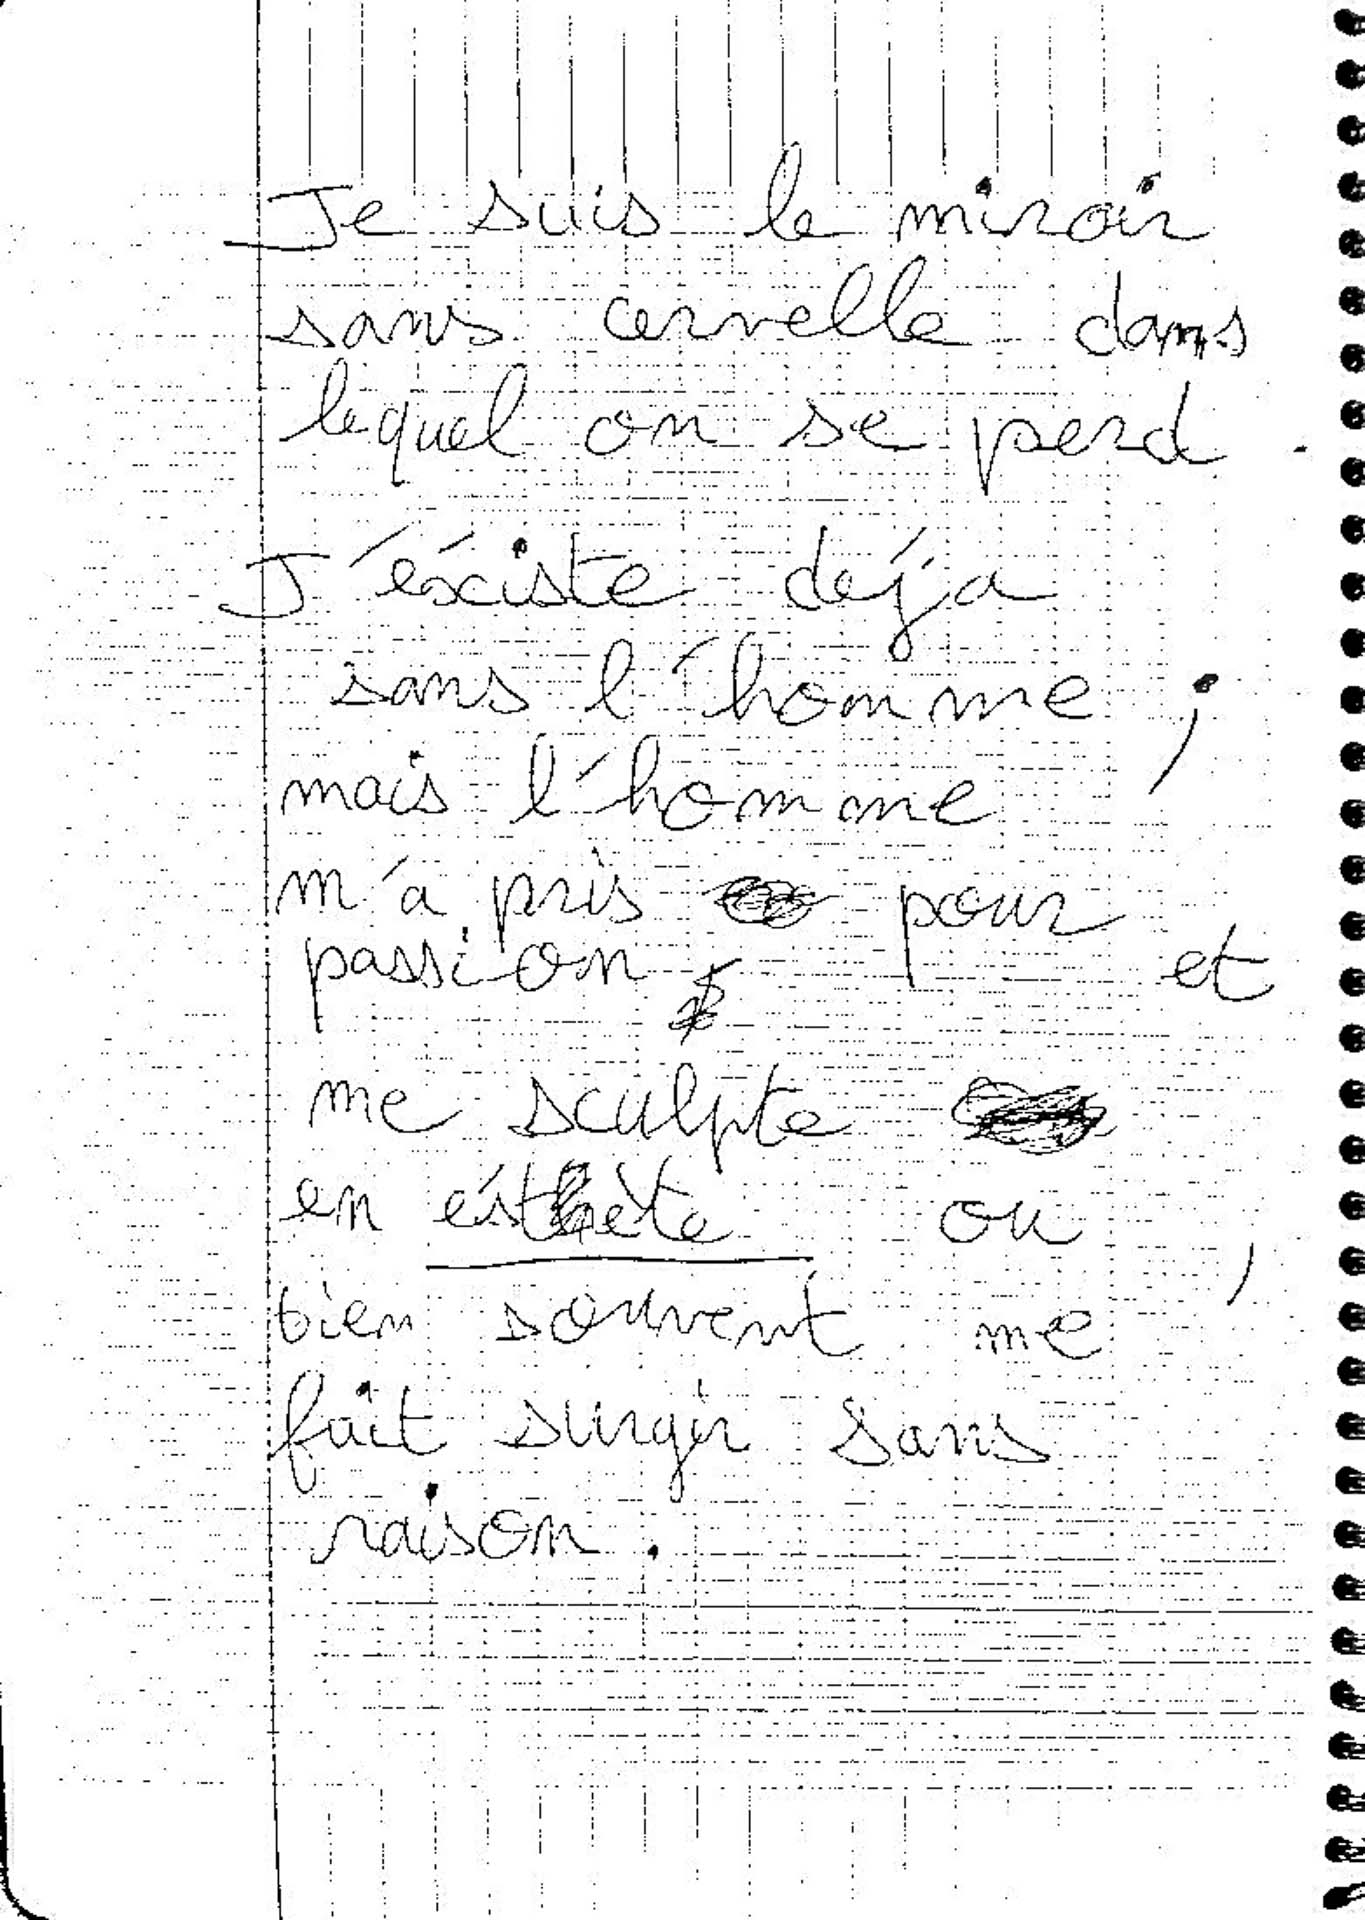 Je suis le miroir
sans cervelle dans
lequel on se perd.
J'éxiste déja
sans l'homme ;
mais l'homme
m'a pris pour
passion et
me sculpte
en ésthète ou,
bien souvent me
fait surgir sans
raison.